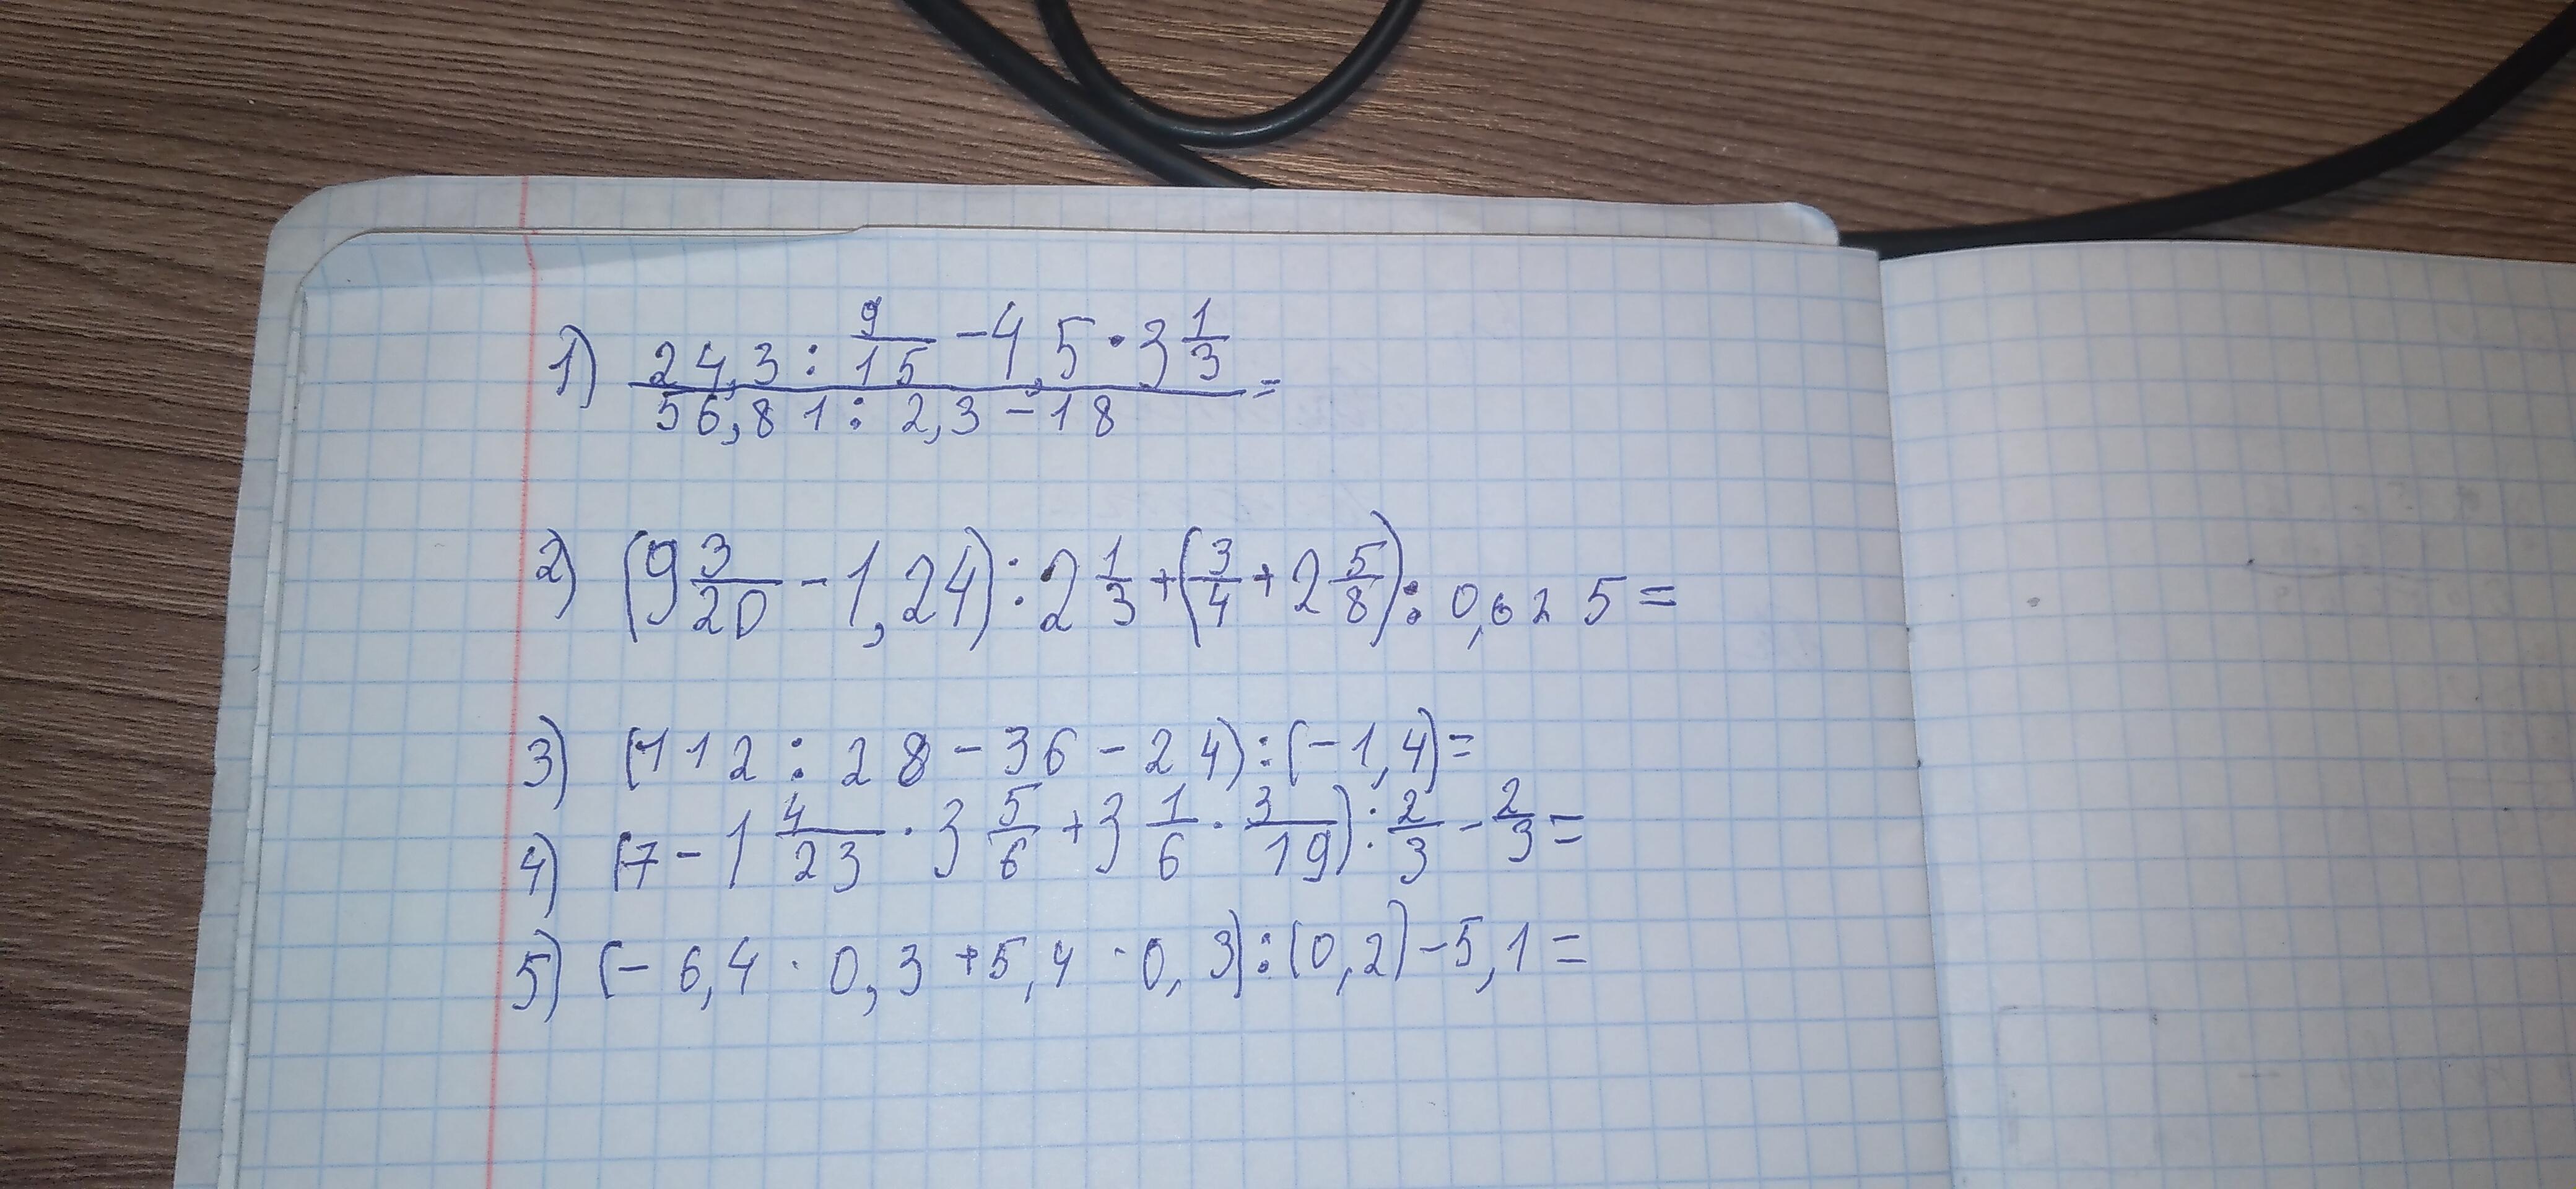 1) (24,3 : 9/15 - 4,5 · 3 1/3) / (56,81 : 2,3 - 18) =
2) (9 3/20 - 1,24) : 2 1/3 + (3/4 + 2 5/8) : 0,625 =
3) (112 : 28 - 36 - 24) : (-1,4) =
4) (7 - 1 4/23 · 3 5/6 + 3 1/6 · 3/19) : 2/3 - 2/3 =
5) (- 6,4 · 0,3 + 5,4 · 0,3) : (0,2) - 5,1 =